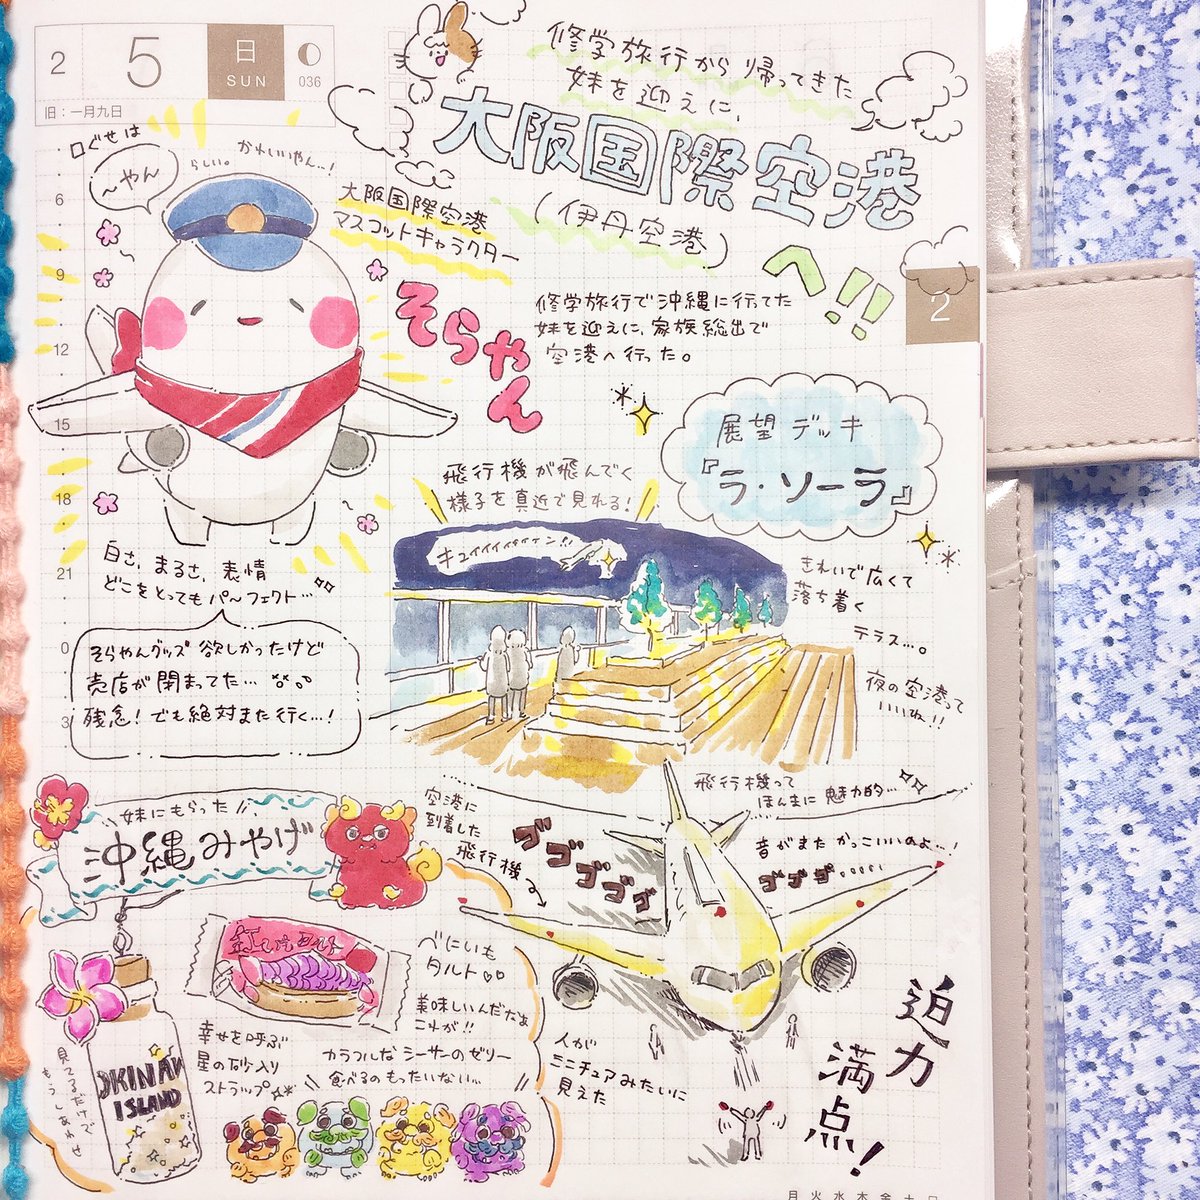 2
5
日
SUN
036
旧：一月九日
修学旅行から帰ってきた
妹を迎えに、
大阪国際空港
(伊丹空港)
へ!!
口ぐせは
〜やん
らしい。かわいいやん…!
大阪国際空港
マスコットキャラクター
そらやん
修学旅行で沖縄に行ってた
妹を迎えに、家族総出で
空港へ行った。
2
6
9
12
15
18
21
0
3
展望デッキ
『ラ・ソーラ』
飛行機が飛んでく
様子を真近で見れる!
きれいで広くて
落ち着く
テラス…。
夜の空港って
いいね!!
白さ、まるさ、表情
どこをとってもパーフェクト…
そらやんグッズ欲しかったけど
売店が閉まってた…
残念!でも絶対また行く…!
妹にもらった
沖縄みやげ
空港に
到着した
飛行機
ゴゴゴゴゴ
飛行機って
ほんまに魅力的…
音がまたかっこいいのよ…!
ゴゴゴ……
紅いもタルト
べにいも
タルト
美味しいんだなぁ
これが!!
幸せを呼ぶ
星の砂入り
ストラップ
カラフルなシーサーのゼリー
食べるのもったいない…
見てるだけで
もうしあわせ
OKINAWA
ISLAND
人が
ミニチュアみたいに
見えた
迫力
満点!
月火水木金土日